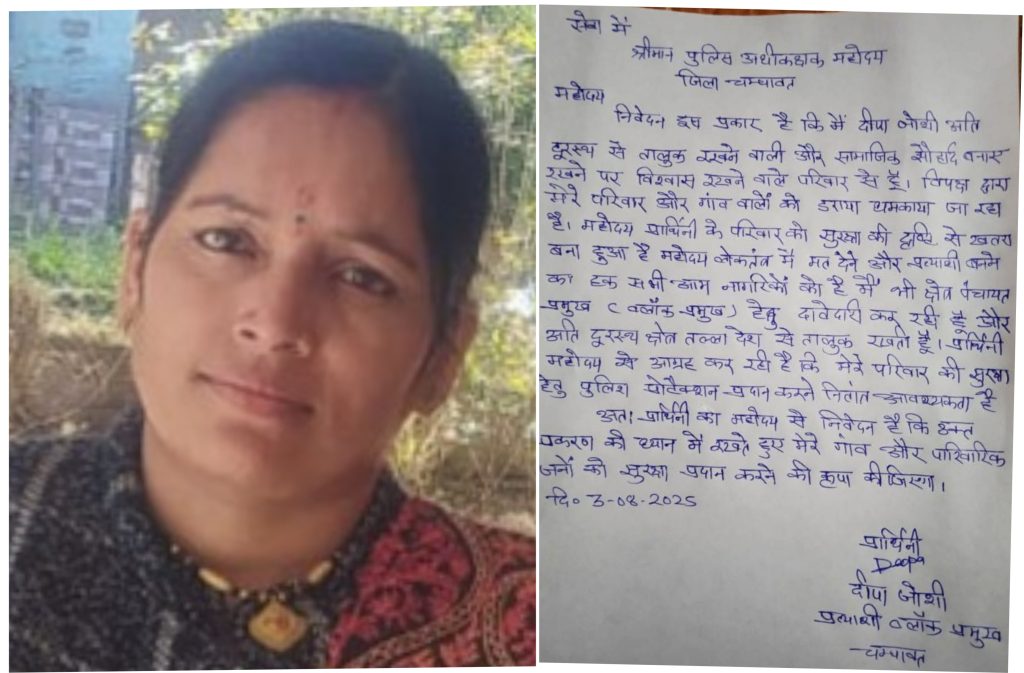 सेवा में
श्रीमान पुलिस अधीकक्षक महोदय
जिला - चम्पावत
महोदय
निवेदन इस प्रकार है कि मैं दीपा जोशी अति
दूरस्थ से तालुक रखने वाली और सामाजिक सौहार्द बनाए
रखने पर विश्वास रखने वाले परिवार से हूँ। विपक्ष द्वारा
मेरे परिवार और गांव वालों को डराया धमकाया जा रहा
है। महोदय प्रार्थिनी के परिवार को सुरक्षा की दृष्टि से खतरा
बना हुआ है महोदय लोकतंत्र में मत देने और प्रत्याशी बनने
का हक सभी आम नागरिकों को है मैं भी क्षेत्र पंचायत
प्रमुख (ब्लॉक प्रमुख) हेतु दावेदारी कर रही हूँ और
अति दूरस्थ क्षेत्र तल्ला देश से तालुक रखती हूँ। प्रार्थिनी
महोदय से आग्रह कर रही है कि मेरे परिवार की सुरक्षा
हेतु पुलिश प्रोटैक्शन प्रदान करने नितांत आवश्यकता है
अतः प्रार्थिनी का महोदय से निवेदन है कि उक्त
प्रकरण को ध्यान में रखते हुए मेरे गांव और पारिवारिक
जनों को सुरक्षा प्रदान करने की कृपा कीजिएगा।
दि० 3-08-2025
प्रार्थिनी
Deepa
दीपा जोशी
प्रत्याशी ब्लॉक प्रमुख
- चम्पावत